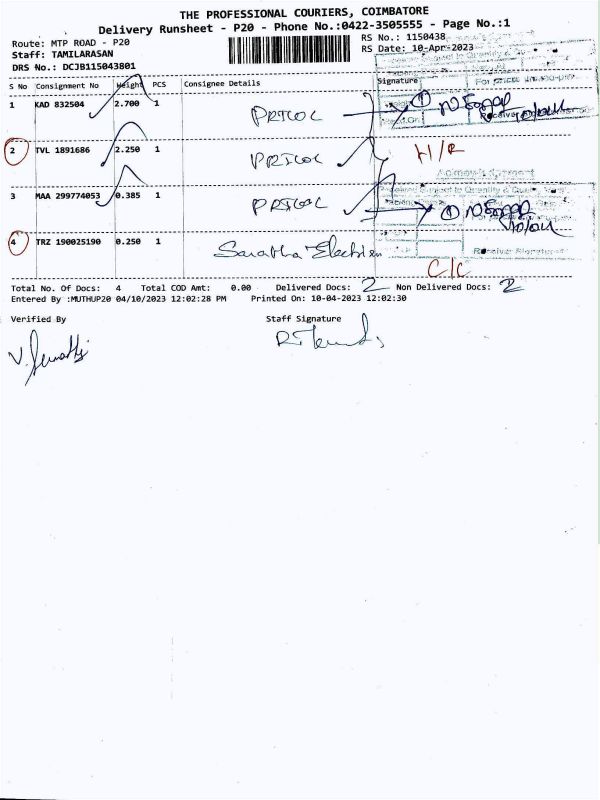 THE PROFESSIONAL COURIERS, COIMBATORE
Delivery Runsheet - P20 - Phone No.:0422-3505555 - Page No.:1
Route: MTP ROAD - P20 RS No.: 1150438
Staff: TAMILARASAN RS Date: 10-Apr-2023
DRS No.: DCJB115043801
S No Consignment No Weight PCS Consignee Details Signature
1 KAD 832504 2.700 1 PRICOL
2 TVL 1891686 2.250 1 PRICOL H/R
3 MAA 299774053 0.385 1 PRICOL
4 TRZ 190025190 0.250 1 C/C
Total No. Of Docs: 4 Total COD Amt: 0.00 Delivered Docs: 2 Non Delivered Docs: 2
Entered By :MUTHUP20 04/10/2023 12:02:28 PM Printed On: 10-04-2023 12:02:30
Verified By Staff Signature